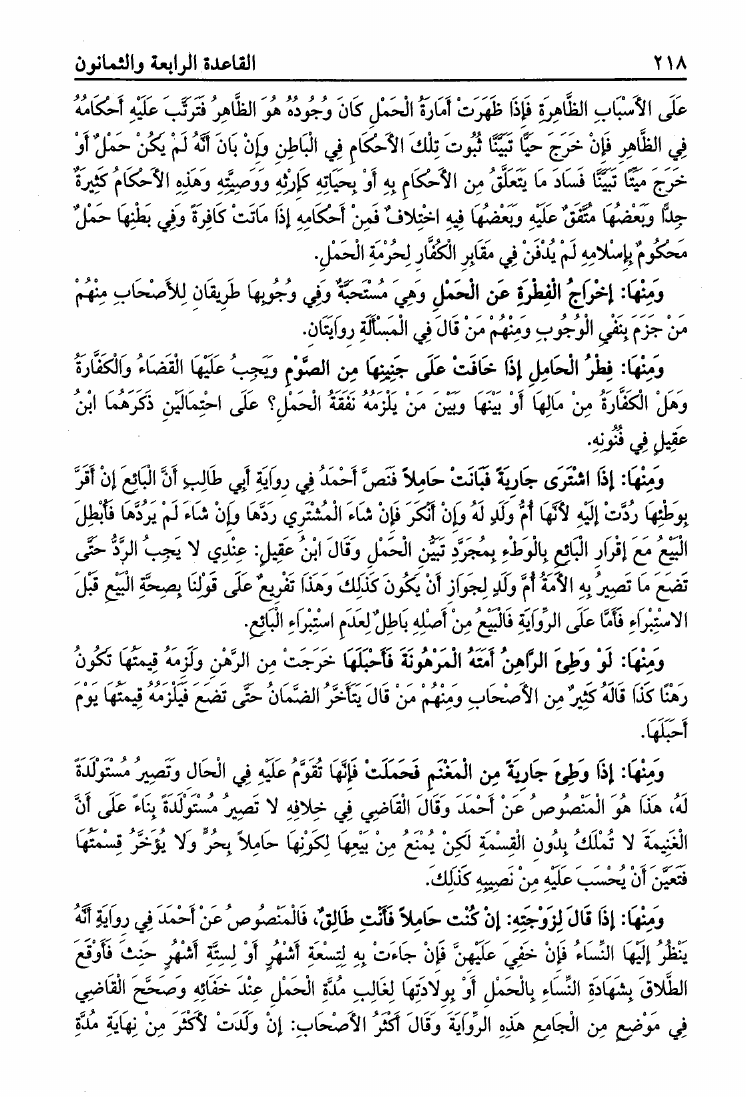 ٢١٨
القاعدة الرابعة والثمانون
عَلَى الأَسْبَابِ الظَّاهِرَةِ فَإِذَا ظَهَرَتْ أَمَارَةُ الْحَمْلِ كَانَ وُجُودُهُ هُوَ الظَّاهِرُ فَتَرَتَّبَ عَلَيْهِ أَحْكَامُهُ
فِي الظَّاهِرِ فَإِنْ خَرَجَ حَيًّا تَبَيَّنَّا ثُبُوتَ تِلْكَ الأَحْكَامِ فِي الْبَاطِنِ وَإِنْ بَانَ أَنَّهُ لَمْ يَكُنْ حَمْلٌ أَوْ
خَرَجَ مَيِّتًا تَبَيَّنَّا فَسَادَ مَا يَتَعَلَّقُ مِنَ الأَحْكَامِ بِهِ أَوْ بِحَيَاتِهِ كَإِرْثِهِ وَوَصِيَّتِهِ وَهَذِهِ الأَحْكَامُ كَثِيرَةٌ
جِدًّا وَبَعْضُهَا مُتَّفَقٌ عَلَيْهِ وَبَعْضُهَا فِيهِ اخْتِلَافٌ فَمِنْ أَحْكَامِهِ إِذَا مَاتَتْ كَافِرَةً وَفِي بَطْنِهَا حَمْلٌ
مَحْكُومٌ بِإِسْلَامِهِ لَمْ يُدْفَنْ فِي مَقَابِرِ الْكُفَّارِ لِحُرْمَةِ الْحَمْلِ.
وَمِنْهَا: إِخْرَاجُ الْفِطْرَةِ عَنِ الْحَمْلِ وَهِيَ مُسْتَحَبَّةٌ وَفِي وُجُوبِهَا طَرِيقَانِ لِلأَصْحَابِ مِنْهُمْ
مَنْ جَزَمَ بِنَفْيِ الْوُجُوبِ وَمِنْهُمْ مَنْ قَالَ فِي الْمَسْأَلَةِ رِوَايَتَانِ.
وَمِنْهَا: فِطْرُ الْحَامِلِ إِذَا خَافَتْ عَلَى جَنِينِهَا مِنَ الصَّوْمِ وَيَجِبُ عَلَيْهَا الْقَضَاءُ وَالْكَفَّارَةُ
وَهَلِ الْكَفَّارَةُ مِنْ مَالِهَا أَوْ بَيْنَهَا وَبَيْنَ مَنْ يَلْزَمُهُ نَفَقَةُ الْحَمْلِ؟ عَلَى احْتِمَالَيْنِ ذَكَرَهُمَا ابْنُ
عَقِيلٍ فِي فُنُونِهِ.
وَمِنْهَا: إِذَا اشْتَرَى جَارِيَةً فَبَانَتْ حَامِلاً فَنَصَّ أَحْمَدُ فِي رِوَايَةِ أَبِي طَالِبٍ أَنَّ الْبَائِعَ إِنْ أَقَرَّ
بِوَطْئِهَا رُدَّتْ إِلَيْهِ لأَنَّهَا أُمُّ وَلَدٍ لَهُ وَإِنْ أَنْكَرَ فَإِنْ شَاءَ الْمُشْتَرِي رَدَّهَا وَإِنْ شَاءَ لَمْ يَرُدَّهَا فَأَبْطِلَ
الْبَيْعُ مَعَ إِقْرَارِ الْبَائِعِ بِالْوَطْءِ بِمُجَرَّدِ تَبَيُّنِ الْحَمْلِ وَقَالَ ابْنُ عَقِيلٍ: عِنْدِي لَا يَجِبُ الرَّدُّ حَتَّى
تَضَعَ مَا تَصِيرُ بِهِ الأَمَةُ أُمَّ وَلَدٍ لِجَوَازِ أَنْ يَكُونَ كَذَلِكَ وَهَذَا تَفْرِيعٌ عَلَى قَوْلِنَا بِصِحَّةِ الْبَيْعِ قَبْلَ
الاسْتِبْرَاءِ فَأَمَّا عَلَى الرِّوَايَةِ فَالْبَيْعُ مِنْ أَصْلِهِ بَاطِلٌ لِعَدَمِ اسْتِبْرَاءِ الْبَائِعِ.
وَمِنْهَا: لَوْ وَطِئَ الرَّاهِنُ أَمَتَهُ الْمَرْهُونَةَ فَأَحْبَلَهَا خَرَجَتْ مِنَ الرَّهْنِ وَلَزِمَهُ قِيمَتُهَا تَكُونُ
رَهْنًا كَذَا قَالَهُ كَثِيرٌ مِنَ الأَصْحَابِ وَمِنْهُمْ مَنْ قَالَ يَتَأَخَّرُ الضَّمَانُ حَتَّى تَضَعَ فَيَلْزَمُهُ قِيمَتُهَا يَوْمَ
أَحْبَلَهَا.
وَمِنْهَا: إِذَا وَطِئَ جَارِيَةً مِنَ الْمَغْنَمِ فَحَمَلَتْ فَإِنَّهَا تُقَوَّمُ عَلَيْهِ فِي الْحَالِ وَتَصِيرُ مُسْتَوْلَدَةً
لَهُ، هَذَا هُوَ الْمَنْصُوصُ عَنْ أَحْمَدَ وَقَالَ الْقَاضِي فِي خِلَافِهِ لَا تَصِيرُ مُسْتَوْلَدَةً بِنَاءً عَلَى أَنَّ
الْغَنِيمَةَ لَا تُمْلَكُ بِدُونِ الْقِسْمَةِ لَكِنْ يُمْنَعُ مِنْ بَيْعِهَا لِكَوْنِهَا حَامِلاً بِحُرٍّ وَلَا يُؤَخَّرُ قِسْمَتُهَا
فَتَعَيَّنَ أَنْ يُحْسَبَ عَلَيْهِ مِنْ نَصِيبِهِ كَذَلِكَ.
وَمِنْهَا: إِذَا قَالَ لِزَوْجَتِهِ: إِنْ كُنْتِ حَامِلاً فَأَنْتِ طَالِقٌ، فَالْمَنْصُوصُ عَنْ أَحْمَدَ فِي رِوَايَةِ أَنَّهُ
يَنْظُرُ إِلَيْهَا النِّسَاءُ فَإِنْ خَفِيَ عَلَيْهِنَّ فَإِنْ جَاءَتْ بِهِ لِتِسْعَةِ أَشْهُرٍ أَوْ لِسِتَّةِ أَشْهُرٍ حَنِثَ فَأَوْقَعَ
الطَّلَاقَ بِشَهَادَةِ النِّسَاءِ بِالْحَمْلِ أَوْ بِوِلَادَتِهَا لِغَالِبِ مُدَّةِ الْحَمْلِ عِنْدَ خَفَائِهِ وَصَحَّحَ الْقَاضِي
فِي مَوْضِعٍ مِنَ الْجَامِعِ هَذِهِ الرِّوَايَةَ وَقَالَ أَكْثَرُ الأَصْحَابِ: إِنْ وَلَدَتْ لأَكْثَرَ مِنْ نِهَايَةِ مُدَّةِ